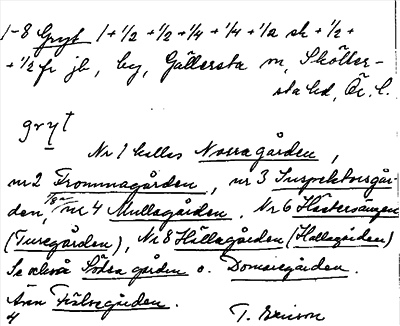 1-8 Gryt 1+1/2+1/2+1/4+1/4+1/2 sk+1/2+
+1/2 fr jb, by, Gällersta sn, Sköllersta hd, Ör. l.
gryt
Nr 1 kallas Norra gården,
nr 2 Trommagården, nr 3 Inspektorsgården, nr 4 Mullagården. Nr 6
(Turegården), Nr 8 Hällagården (Hallagården)
Se också Södra gården o. Domaregården.
Även Fälregården.
4 T. Ericson